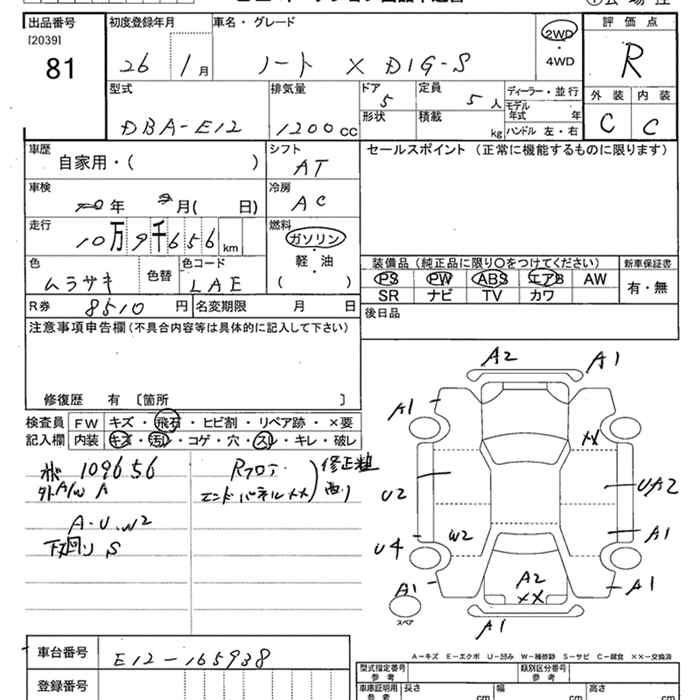 出品番号 初度登録年月 車名・グレード 2WD 評価点
[2039] ・
81 26 1月 ノート X DIG-S 4WD R
型式 排気量 ドア 定員 ディーラー・並行 外装 内装
5 5人 モデル年式 年
DBA-E12 1200cc 形状 積載 kg ハンドル 左・右 C C
車歴 シフト セールスポイント (正常に機能するものに限ります)
自家用・( ) AT
車検 冷房
年 月( 日) AC
走行 燃料
10万9千656km ガソリン
色 色替 色コード 軽・油 装備品 (純正品に限り○をつけてください) 新車保証書
ムラサキ LAE ( ) PS PW ABS エアB AW 有・無
R券 8510円 名変期限 月 日 SR ナビ TV カワ
注意事項申告欄(不具合内容等は具体的に記入して下さい) 後日品
修復歴 有 [箇所 ]
検査員 FW キズ・飛石・ヒビ割・リペア跡・×要
記入欄 内装 キズ・汚れ・コゲ・穴・スレ・キレ・破レ
109656 Rフロア 修正粗
外A/W A エンドパネルXX
A・U・W2
下回り S
A2 A1
A1
U2 UA2
W2 A1
U4
A1 A2 A1
XX
スペア
A1
A-キズ E-エクボ U-凹み W-補修跡 S-サビ C-腐食 XX-交換済
車台番号 E12-165938 型式指定番号 参考 類別区分番号 参考
登録番号 車庫証明用 参考 長さ cm 幅 cm 高さ cm